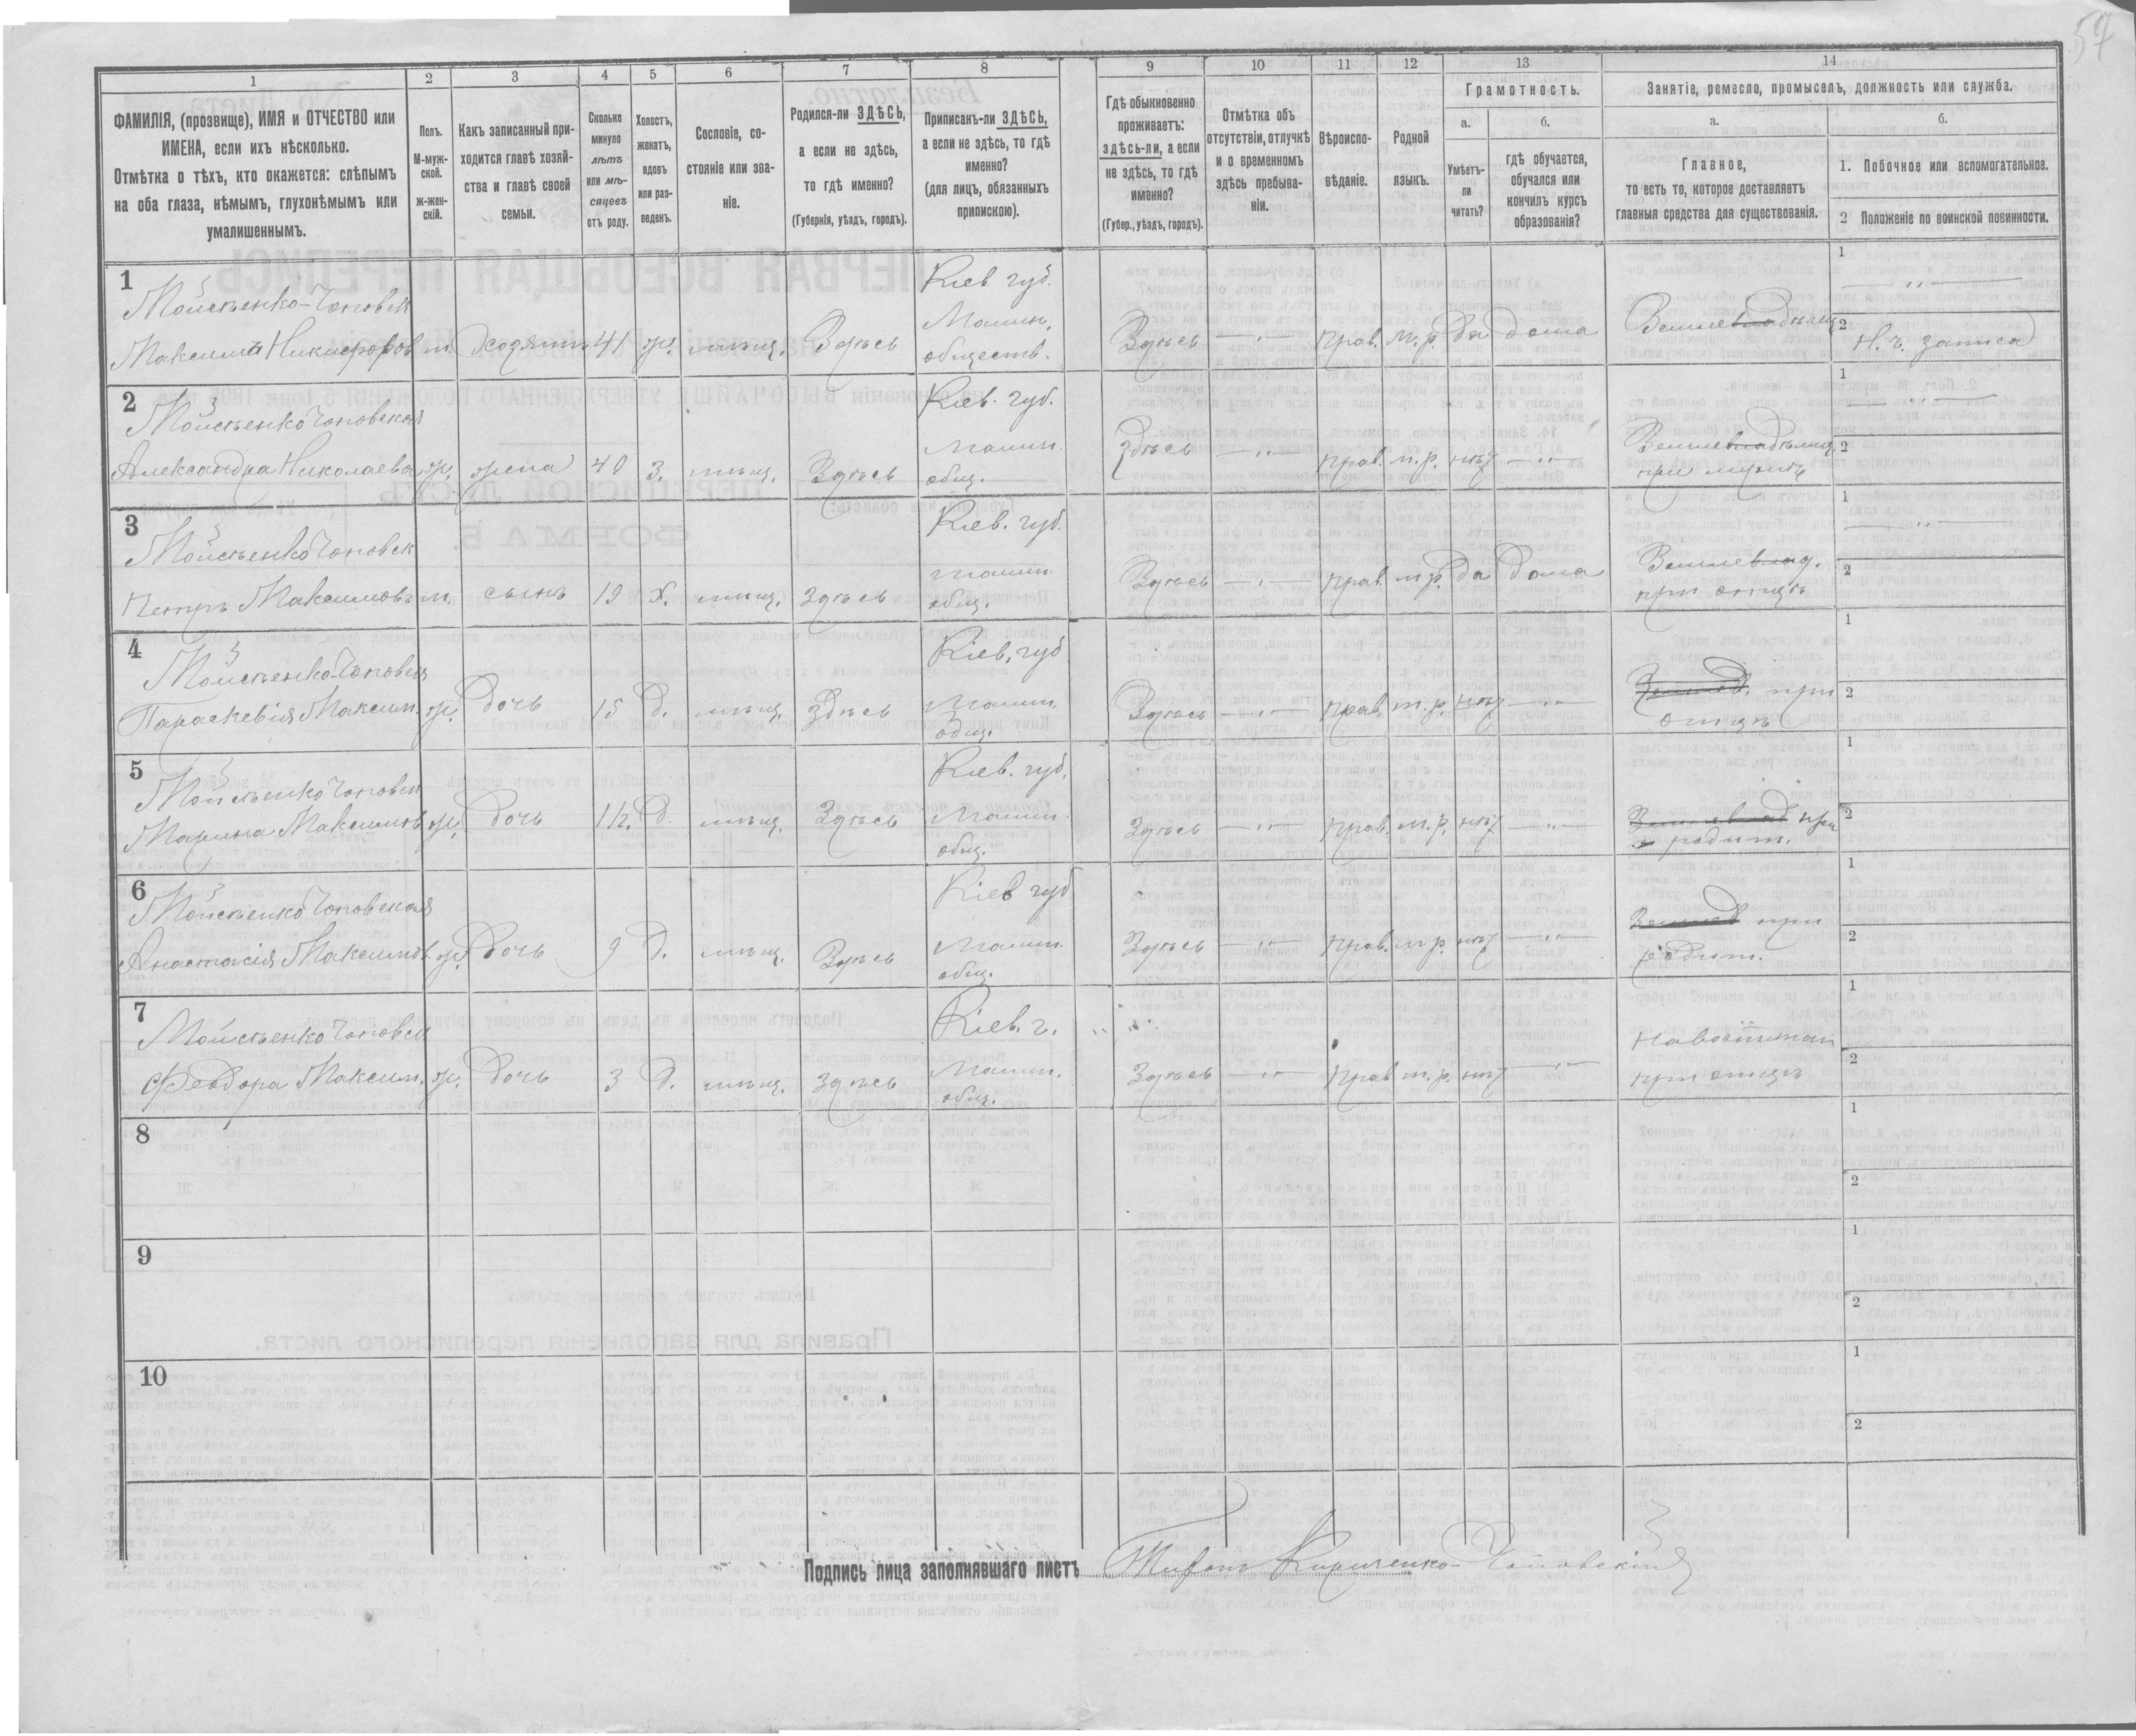 57
1 2 3 4 5 6 7 8 9 10 11 12 13 14
ФАМИЛІЯ, (прозвище), ИМЯ и ОТЧЕСТВО или
ИМЕНА, если ихъ нѣсколько.
Отмѣтка о тѣхъ, кто окажется: слѣпымъ
на оба глаза, нѣмымъ, глухонѣмымъ или
умалишеннымъ.
Полъ.
М-муж-
ской.
ж-жен-
скій.
Какъ записанный при-
ходится главѣ хозяй-
ства и главѣ своей
семьи.
Сколько
минуло
лѣтъ
или мѣ-
сяцевъ
отъ роду.
Холостъ,
женатъ,
вдовъ
или раз-
веденъ.
Сословіе, со-
стояніе или зва-
ніе.
Родился-ли ЗДѢСЬ,
а если не здѣсь,
то гдѣ именно?
(Губернія, уѣздъ, городъ).
Приписанъ-ли ЗДѢСЬ,
а если не здѣсь, то гдѣ
именно?
(для лицъ, обязанныхъ
припискою).
Гдѣ обыкновенно
проживаетъ:
здѣсь-ли, а если
не здѣсь, то гдѣ
именно?
(Губер., уѣздъ, городъ).
Отмѣтка объ
отсутствіи, отлучкѣ
и о временномъ
здѣсь пребыва-
ніи.
Вѣроиспо-
вѣданіе.
Родной
языкъ.
Грамотность.
а.
Умѣетъ-
ли
читать?
б.
гдѣ обучается,
обучался или
кончилъ курсъ
образованія?
Занятіе, ремесло, промыселъ, должность или служба.
а.
Главное,
то есть то, которое доставляетъ
главныя средства для существованія.
б.
1. Побочное или вспомогательное.
2 Положеніе по воинской повинности.
1
Мойсѣенко-Чоповск
Максимъ Никифоров м. Хозяинъ 41 ж. мѣщ. Здѣсь
Кіев губ.
Малин.
обществ.
Здѣсь — " — Прав. м. р. да дома
Землевладѣлец
1 — " —
2 Н. ч. записа
2
Мойсѣенко Чоповская
Александра Николаева ж. жена 40 З. мѣщ. Здѣсь
Кіев. губ.
Малин.
общ.
Здѣсь — " — Прав. м. р. нѣт — " —
Землевладѣлиц.
при мужѣ
1 — " —
2
3
Мойсѣенко Чоповск
Петръ Максимовъ м. сынъ 19 Х. мѣщ. Здѣсь
Кіев. губ.
Малин.
общ.
Здѣсь — " — Прав. м. р. да дома
Землевлад.
при отцѣ
1 — " —
2
4
Мойсѣенко-Чоповск
Параскевія Максим. ж. Дочь 15 Д. мѣщ. Здѣсь
Кіев. губ
Малин.
общ.
Здѣсь — " — Прав. м. р. нѣт — " —
Землев. при
отцѣ
1
2
5
Мойсѣенко Чоповск
Марина Максимов. ж. Дочь 12. Д. мѣщ. Здѣсь
Кіев. губ.
Малин.
общ.
Здѣсь — " — Прав. м. р. нѣт — " —
Землевлад при
родит.
1
2
6
Мойсѣенко Чоповская
Анастасія Максимов. ж. Дочь 9 Д. мѣщ. Здѣсь
Кіев губ
Малин.
общ.
Здѣсь — " — Прав. м. р. нѣт — " —
Землев при
родит.
1
2
7
Мойсѣенко Чоповск
Феодора Максим. ж. Дочь 3 Д. мѣщ. Здѣсь
Кіев. г.
Малин.
общ.
Здѣсь — " — Прав м. р. нѣт — " —
при отцѣ
1
2
8
1
2
9
1
2
10
1
2
Подпись лица заполнявшаго листъ Кириченко-Чоповскій